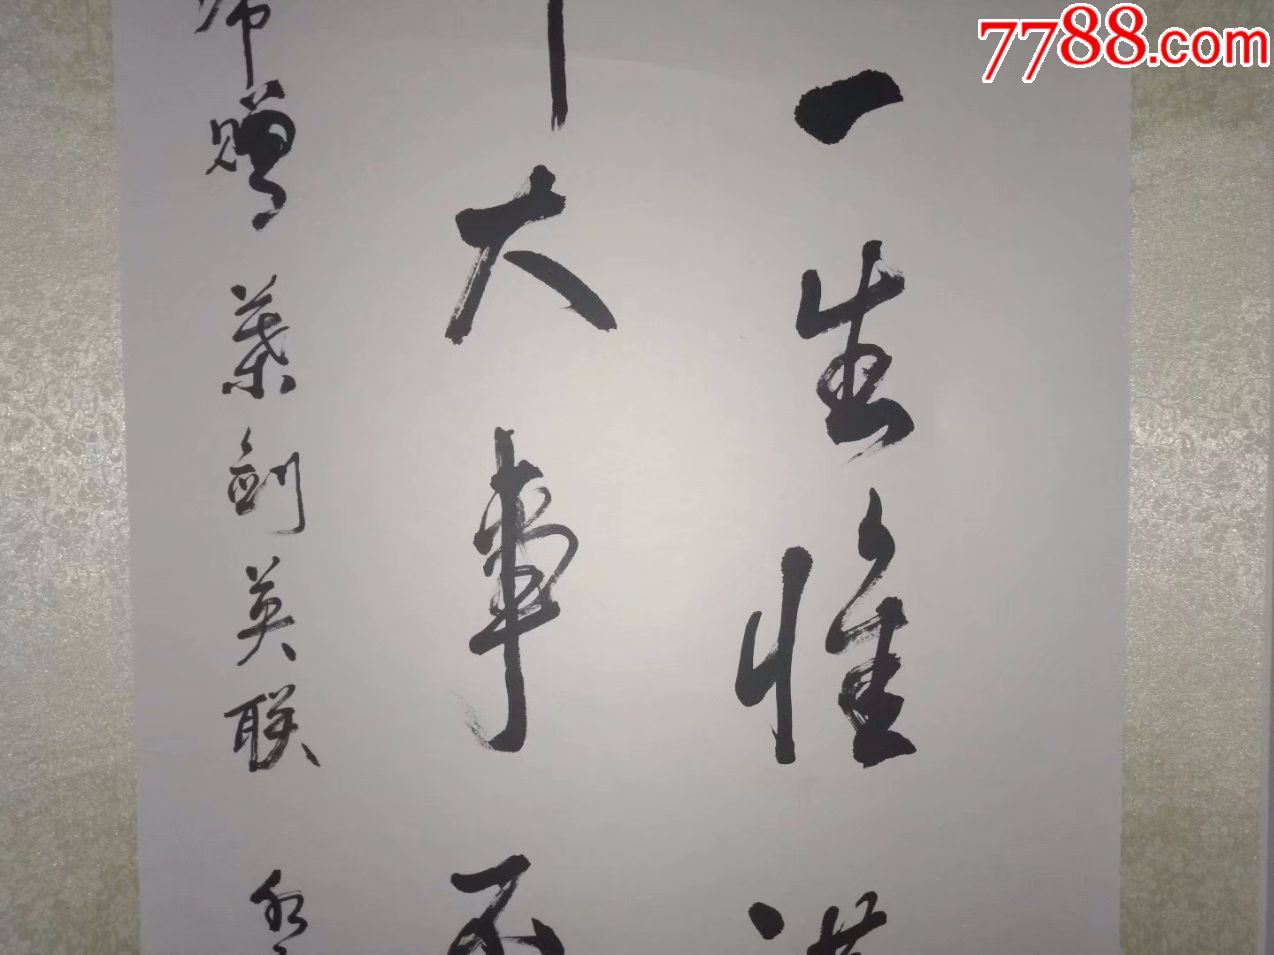 7788.com
一生惟谨
大事不
帅赠叶剑英联